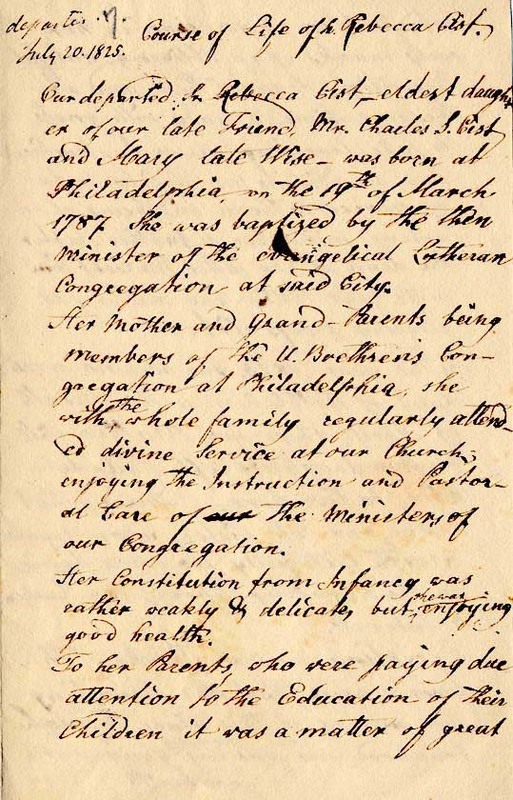 departed
July 20. 1825.
Course of Life of Sr. Rebecca Cist.
Our departed Sr. Rebecca Cist, eldest daught
er of our late Friend, Mr. Charles S. Cist
and Mary late Wise – was born at
Philadelphia, on the 19th of March
1787. She was baptized by the then
minister of the evangelical Lutheran
Congregation at said City.
Her Mother and Grand-Parents being
members of the U. Brethren's Con-
gregation at Philadelphia, she
with the whole family regularly attend-
ed divine Service at our Church;
enjoying the Instruction and Pastor-
al Care of our the Ministers of
our Congregation.
Her Constitution from Infancy was
rather weakly & delicate, but she was enjoying
good health.
To her Parents, who were paying due
attention to the Education of their
Children it was a matter of great